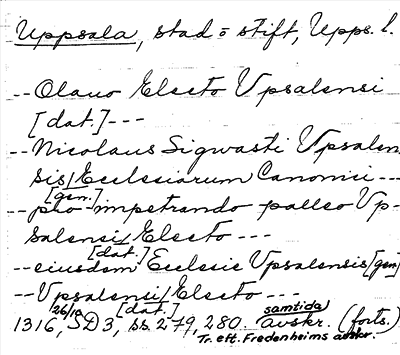 Uppsala, stad o stift, Upps. l.
--Olavo Electo Vpsalensi
[dat.]---
--Nicolaus Sigwasti Vpsalen
sis/Ecclesiarum Canonici---
[gen.]
--pro impetrando palleo Vp-
salensi/Electo---
[dat.]
--eiusdem Ecclesie Vpsalensis [gen]
--Vpsalensi/Electo---
[dat.]
1316, 26/10 SD3, ss. 279, 280. samtida avskr. (forts.)
Tr. eft. Fredenheims avskr.